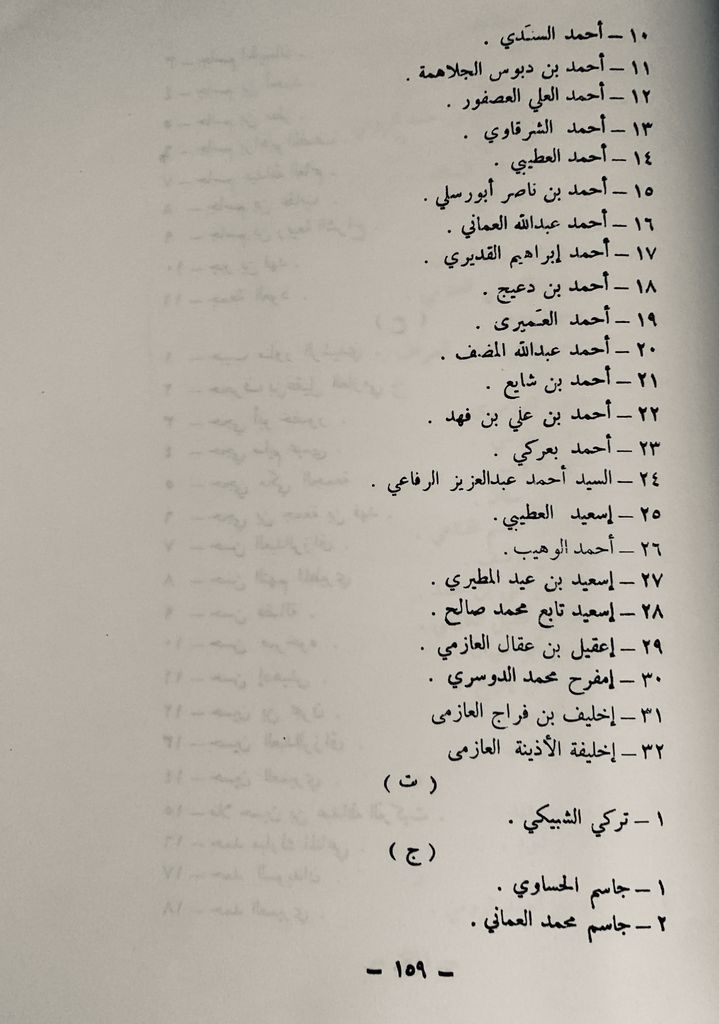 ١٠ – أحمد السنَدي .
١١ – أحمد بن دبوس الجلاهمة .
١٢ – أحمد العلي العصفور .
١٣ – أحمد الشرقاوي .
١٤ – أحمد العطيبي .
١٥ – أحمد بن ناصر أبورسلي .
١٦ – أحمد عبدالله العماني .
١٧ – أحمد إبراهيم القديري .
١٨ – أحمد بن دعيج .
١٩ – أحمد العَميرى .
٢٠ – أحمد عبدالله المضف .
٢١ – أحمد بن شايع .
٢٢ – أحمد بن علي بن فهد .
٢٣ – أحمد بعركي .
٢٤ – السيد أحمد عبدالعزيز الرفاعي .
٢٥ – إسعيد العطيبي .
٢٦ – أحمد الوهيب .
٢٧ – إسعيد بن عيد المطيري .
٢٨ – إسعيد تابع محمد صالح .
٢٩ – إعقيل بن عقال العازمي .
٣٠ – إمفرح محمد الدوسري .
٣١ – إخليف بن فراج العازمى
٣٢ – إخليفة الأذينة العازمى
( ت )
١ – تركي الشبيكي .
( ج )
١ – جاسم الحساوي .
٢ – جاسم محمد العماني .
– ١٥٩ –